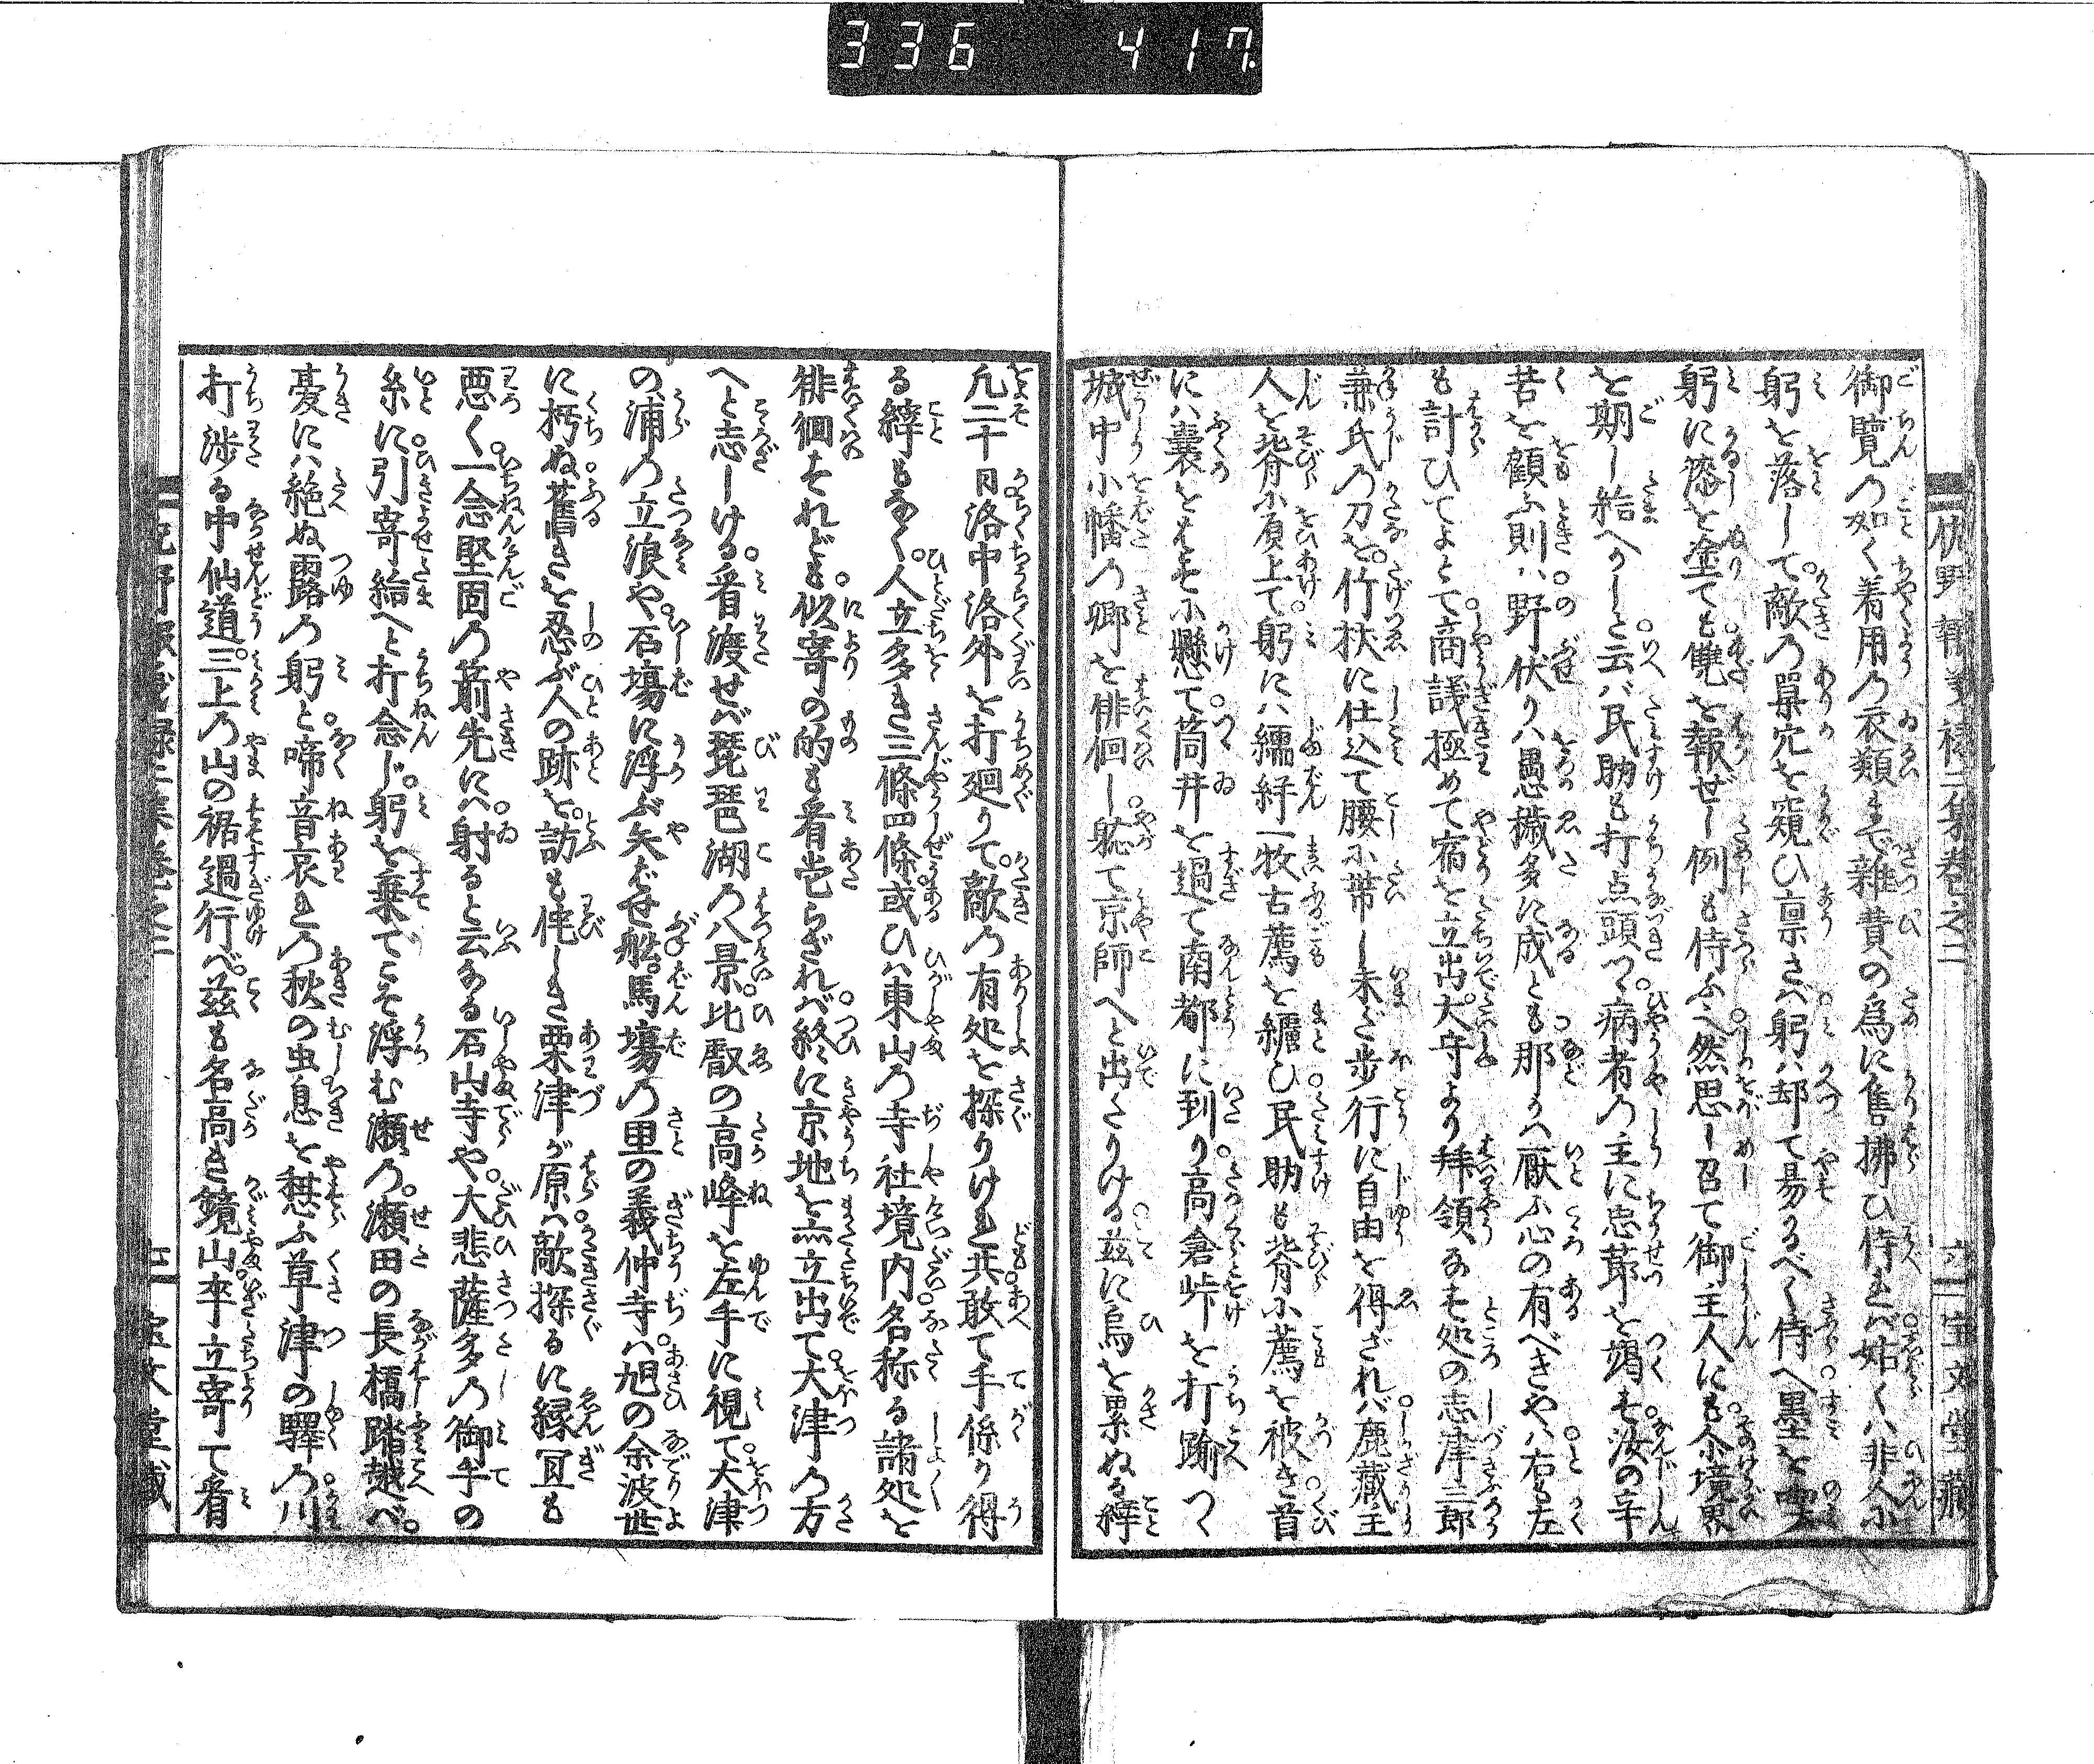 336 417
御覽の如く着用の衣類まで雜費の為に售拂ひ侍れバ姑くハ非人に
躬を落して敵の巣穴を窺ひ凛さバ躬ハ却て易かるべく侍へ墨を喫
躬に漆を塗ても讐を報ぜし例も侍ふ然思し召て御主人にも余境界
を期し給へかしと云バ民助も打点頭つ病者の主に忠節を竭す汝の辛
苦を顧ふ則ハ野伏り愚穢多に成とも那かハ厭ふ心の有べきやハ右も左
も計ひてよとて商議極めて宿を立出大守より拜領なす処の志津三郎
兼氏の刀を竹杖に仕込て腰に帯し未だ歩行に自由を得ざれバ鹿蔵主
人を脊に負上て躬にハ繻絆一牧古薦を纒ひ民助も脊に薦を被き首
にハ嚢をもとに懸て筒井を過て南都に到り高倉峠を打踰つゝ
城中小幡の郷を徘徊し躮て京師へと出たりける茲に烏を累ぬる縡
凢二十日洛中洛外を打廻りて敵の有処を探りけれ共敢て手係り得
る縡もなく人立多き三條四條或ひハ東山の寺社境内名称る諸処を
徘徊それども似寄の的も看当らざれバ終に京地を立出て大津の方
へと志しける看渡せバ琵琶湖の八景比叡の高峰を左手に視て大津
の浦の立浪や石塲に浮ぶ矢ばせ舩馬塲の里の義仲寺ハ旭の余波世
に朽ぬ舊きを忍ぶ人の跡を訪も侘しき粟津が原ハ敵探るに縁宜も
悪く一念堅固の箭先にハ射ると云なる石山寺や大悲薩多の御手の
糸に引寄給へと打念じ躬を棄てこそ浮む瀬の瀬田の長橋踏越べ
憂にハ絶ぬ露の躬と啼音哀れの秋の虫息を憇ふ草津の驛の川
打渉る中仙道三上の山の裾過行べ茲も名高き鏡山卒立寄て看